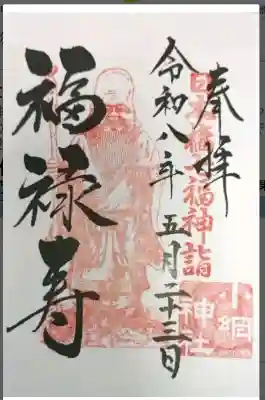 奉拝
日本橋七福神詣
令和八年 五月二十三日
福禄寿
小網
神社